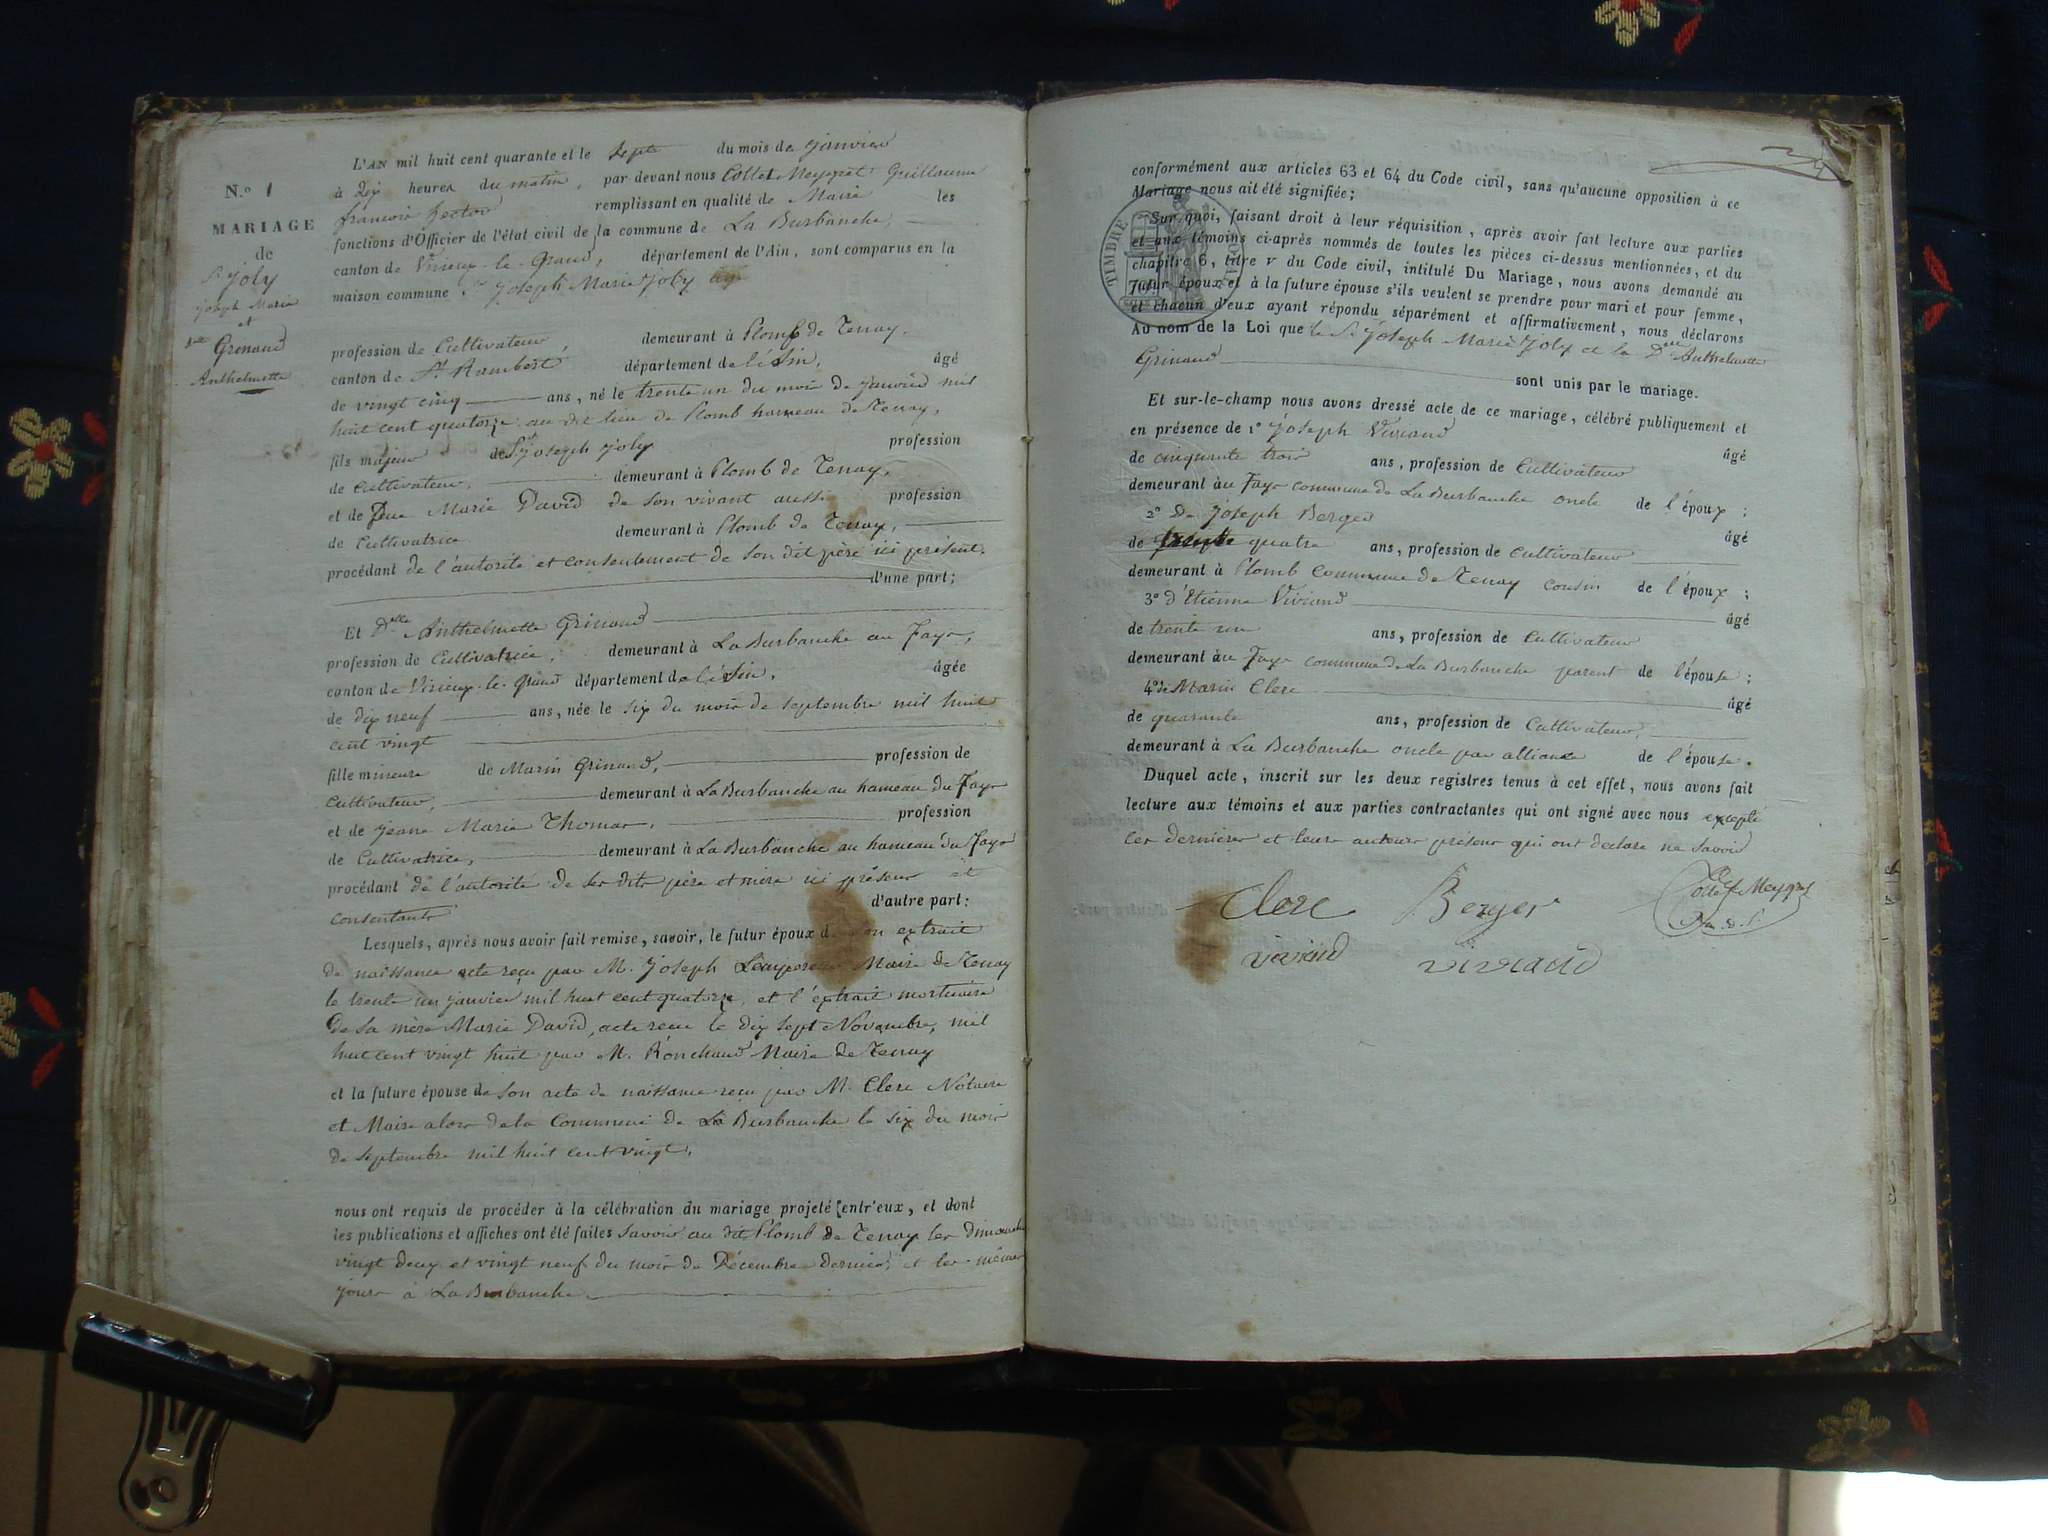 N.o 1
MARIAGE
de
Sr Joly
Joseph Marie
et
Dlle Grinand
Anthelmette
L'AN mil huit cent quarante et le sept du mois de janvier
à Dix heures du matin, par devant nous Collet Meygret Guillaume
francois hector remplissant en qualité de Maire les
fonctions d'Officier de l'état civil de la commune de La Burbanche,
canton de Virieux-le-Grand, département de l'Ain, sont comparus en la
maison commune Sr Joseph Marie Joly
profession de Cultivateur, demeurant à Plomb de Tenay,
canton de St Rambert département de l'Ain, âgé
de vingt cinq ans, né le trente un du mois de janvier mil
huit cent quatorze au dit lieu de Plomb hameau de Tenay,
fils majeur de Sr Joseph Joly profession
de Cultivateur, demeurant à Plomb de Tenay,
et de feue Marie David de son vivant aussi profession
de Cultivatrice demeurant à Plomb de Tenay,
procédant de l'autorité et consentement de son dit père ici présent.
d'une part;
Et Dlle Anthelmette Grinand
profession de Cultivatrice, demeurant à La Burbanche au Fays,
canton de Virieux-le-Grand département de l'Ain, âgée
de dix neuf ans, née le six du mois de septembre mil huit
cent vingt
fille mineure de Marin Grinand, profession de
Cultivateur, demeurant à La Burbanche au hameau du Fays
et de Jeane Marie Thomas, profession
de Cultivatrice, demeurant à La Burbanche au hameau du Fays
procédant de l'autorité de ses dits père et mère ici présens et
consentants d'autre part:
Lesquels, après nous avoir fait remise, savoir, le futur époux de son extrait
de naissance acte reçu par M. Joseph Maire de Tenay
le trente un janvier mil huit cent quatorze, et l'extrait mortuaire
de sa mère Marie David, acte recu le dix sept Novembre, mil
huit cent vingt huit par M. Ronchaud Maire de Tenay
et la future épouse de son acte de naissance reçu par M. Clerc Notaire
et Maire alors de la Commune de La Burbanche le six du mois
de septembre mil huit cent vingt,
nous ont requis de procéder à la célébration du mariage projeté entr'eux, et dont
les publications et affiches ont été faites savoir au dit Plomb de Tenay les dimanches
vingt deux et vingt neuf du mois de Décembre dernier, et les mêmes
jours à La Burbanche
conformément aux articles 63 et 64 du Code civil, sans qu'aucune opposition à ce
Mariage nous ait été signifiée;
TIMBRE
Sur quoi, faisant droit à leur réquisition, après avoir fait lecture aux parties
et aux témoins ci-après nommés de toutes les pièces ci-dessus mentionnées, et du
chapitre 6, titre V du Code civil, intitulé Du Mariage, nous avons demandé au
futur époux et à la future épouse s'ils veulent se prendre pour mari et pour femme,
et chacun d'eux ayant répondu séparément et affirmativement, nous déclarons
Au nom de la Loi que le Sr Joseph Marie Joly et la Dlle Anthelmette
Grinand sont unis par le mariage.
Et sur-le-champ nous avons dressé acte de ce mariage, célébré publiquement et
en présence de 1o Joseph Viviand âgé
de cinquante trois ans, profession de Cultivateur
demeurant au Fays commune de La Burbanche oncle de l'époux;
2o De Joseph Berger âgé
de quatre ans, profession de Cultivateur
demeurant à Plomb Commune de Tenay cousin de l'époux;
3o d'Etienne Viviand âgé
de trente un ans, profession de Cultivateur
demeurant au Fays commune de La Burbanche parent de l'épouse;
4o de Marin Clerc âgé
de quarante ans, profession de Cultivateur,
demeurant à La Burbanche oncle par alliance de l'épouse.
Duquel acte, inscrit sur les deux registres tenus à cet effet, nous avons fait
lecture aux témoins et aux parties contractantes qui ont signé avec nous excepté
ces dernières et leurs auteurs présens qui ont déclaré ne savoir
Clerc Berger Collet Meygret
viviand viviand